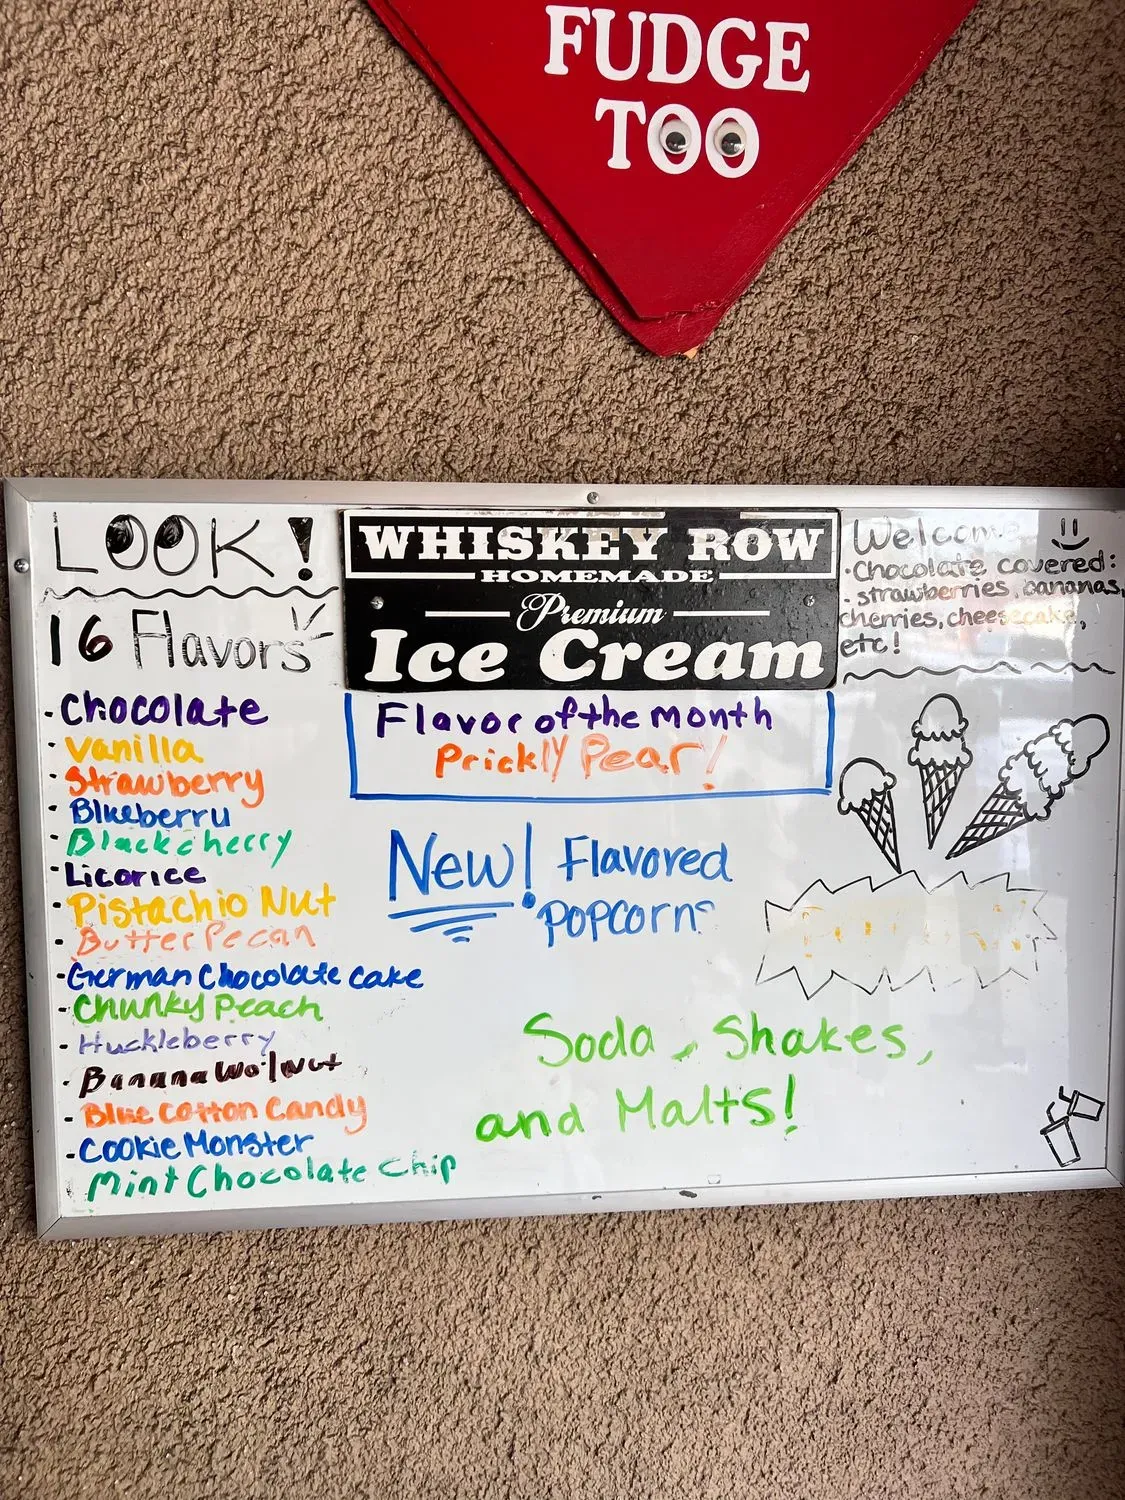 FUDGE
TOO
LOOK!
16 Flavors
· Chocolate
· Vanilla
· Strawberry
· Blueberry
· Black cherry
· Licorice
· Pistachio Nut
· Butter Pecan
· German Chocolate cake
· Chunky Peach
· Huckleberry
· Banana Walnut
· Blue Cotton Candy
· Cookie Monster
Mint Chocolate Chip
WHISKEY ROW
HOMEMADE
Premium
Ice Cream
Flavor of the month
Prickly Pear!
New! Flavored
Popcorn
Soda, Shakes,
and Malts!
Welcome
· Chocolate covered:
- strawberries, bananas,
cherries, cheesecake,
etc!